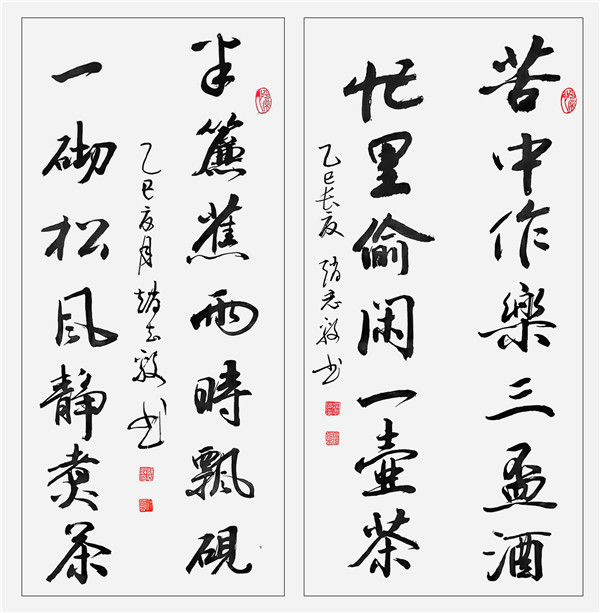 苦中作樂三盃酒
忙里偷闲一壶茶
乙巳长夏 趙志毅书
半簾蕉雨時飄硯
一砌松風静煮茶
乙巳夏月 趙志毅书